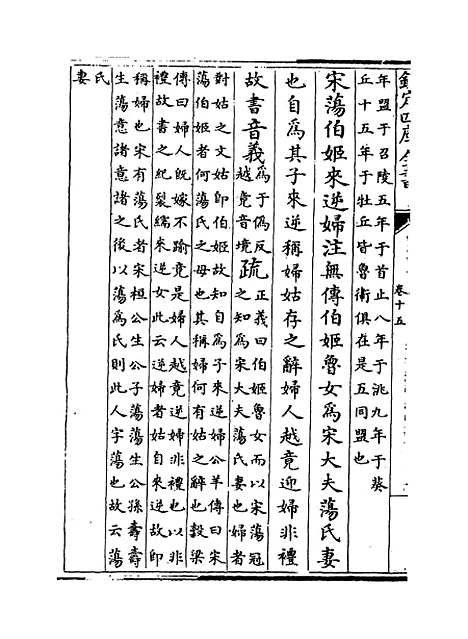 欽定四庫全書
卷十五
年盟于召陵五年于首止八年于洮九年于葵
丘十五年于牡丘皆魯衛俱在是五同盟也
宋蕩伯姬來逆婦注無傳伯姬魯女爲宋大夫蕩氏妻
也自爲其子來逆稱婦姑存之辭婦人越竟迎婦非禮
故書音義爲于偽反越竟音境疏正義曰伯姬魯女而以宋蕩冠之知爲宋大夫蕩氏妻也婦者
對姑之文姑即伯姬故知自爲子來逆婦公羊傳曰宋
蕩伯姬者何蕩氏之母也其稱婦何有姑之辭也穀梁
傳曰婦人既嫁不踰竟是婦人越竟逆婦非禮也以非
禮故書之紀裂繻來逆女此云逆婦者姑自來逆故即
稱婦也宋有蕩氏者宋桓公生公子蕩蕩生公孫壽壽
生蕩意諸意諸之後以蕩爲氏則此人字蕩也故云蕩
氏
妻